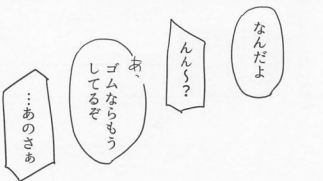 なんだよ
んん～？
あっ
ゴムならもう
してるぞ
…あのさぁ